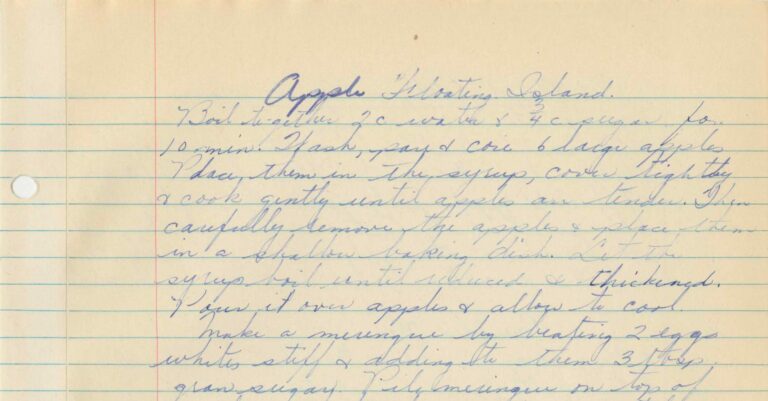 Apple Floating Island.
Boil together 2 c water & 3/4 c sugar for
10 min. Wash, pare & core 6 large apples
Place them in the syrup, cover tightly
& cook gently until apples are tender. Then
carefully remove the apples & place them
in a shallow baking dish. Let the
syrup boil until reduced & thickened.
Pour it over apples & allow to cool.
Make a meringue by beating 2 eggs
whites stiff & adding to them 3 tbsp.
gran. sugar. Pile meringue on top of